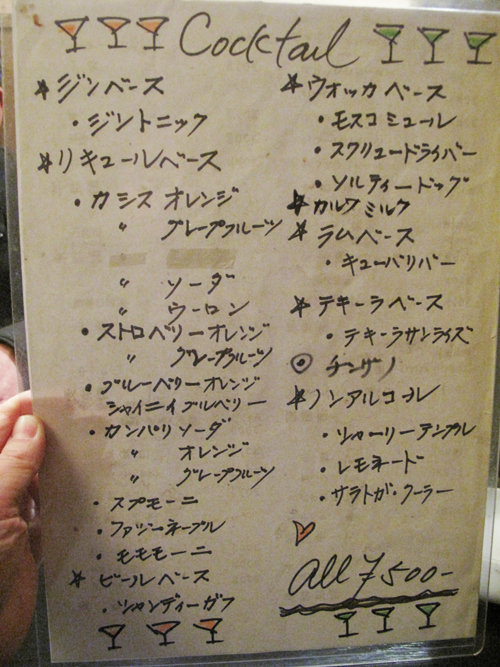 Cocktail
☆ジンベース
・ジントニック
☆リキュールベース
・カシス オレンジ
〃 グレープフルーツ
〃 ソーダ
〃 ウーロン
・ストロベリーオレンジ
〃 グレープフルーツ
・ブルーベリーオレンジ
シャイニィブルベリー
・カンパリ ソーダ
〃 オレンジ
〃 グレープフルーツ
・スプモーニ
・ファジーネーブル
・モモモーニ
☆ビールベース
・シャンディーガフ
☆ウォッカベース
・モスコミュール
・スクリュードライバー
・ソルティードッグ
☆カルアミルク
☆ラムベース
・キューバリバー
☆テキーラベース
・テキーラサンライズ
◎チンザノ
☆ノンアルコール
・シャーリーテンプル
・レモネード
・サラトガ・クーラー
All ¥500-